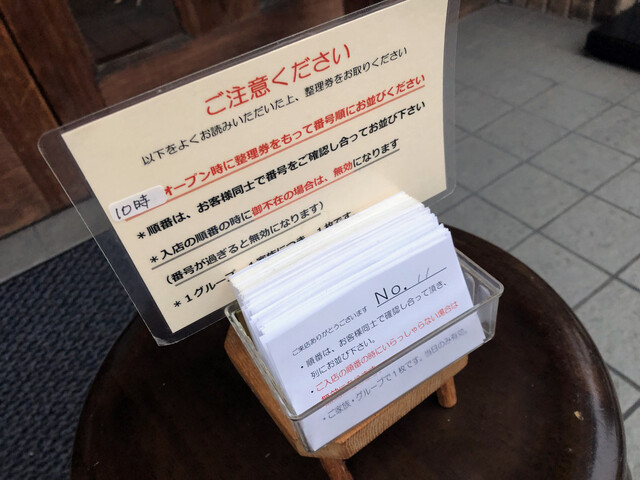 ご注意ください
以下をよくお読みいただいた上、整理券をお取りください
10時
オープン時に整理券をもって番号順にお並びください
＊順番は、お客様同士で番号をご確認し合ってお並び下さい
＊入店の順番の時に御不在の場合は、無効になります
（番号が過ぎると無効になります）
＊１グループ
１枚です
ご来店ありがとうございます
No. 11
・順番は、お客様同士で確認し合って頂き、
列にお並び下さい。
・ご入店の順番の時にいらっしゃらない場合は
・ご家族・グループで１枚です。当日のみ有効。